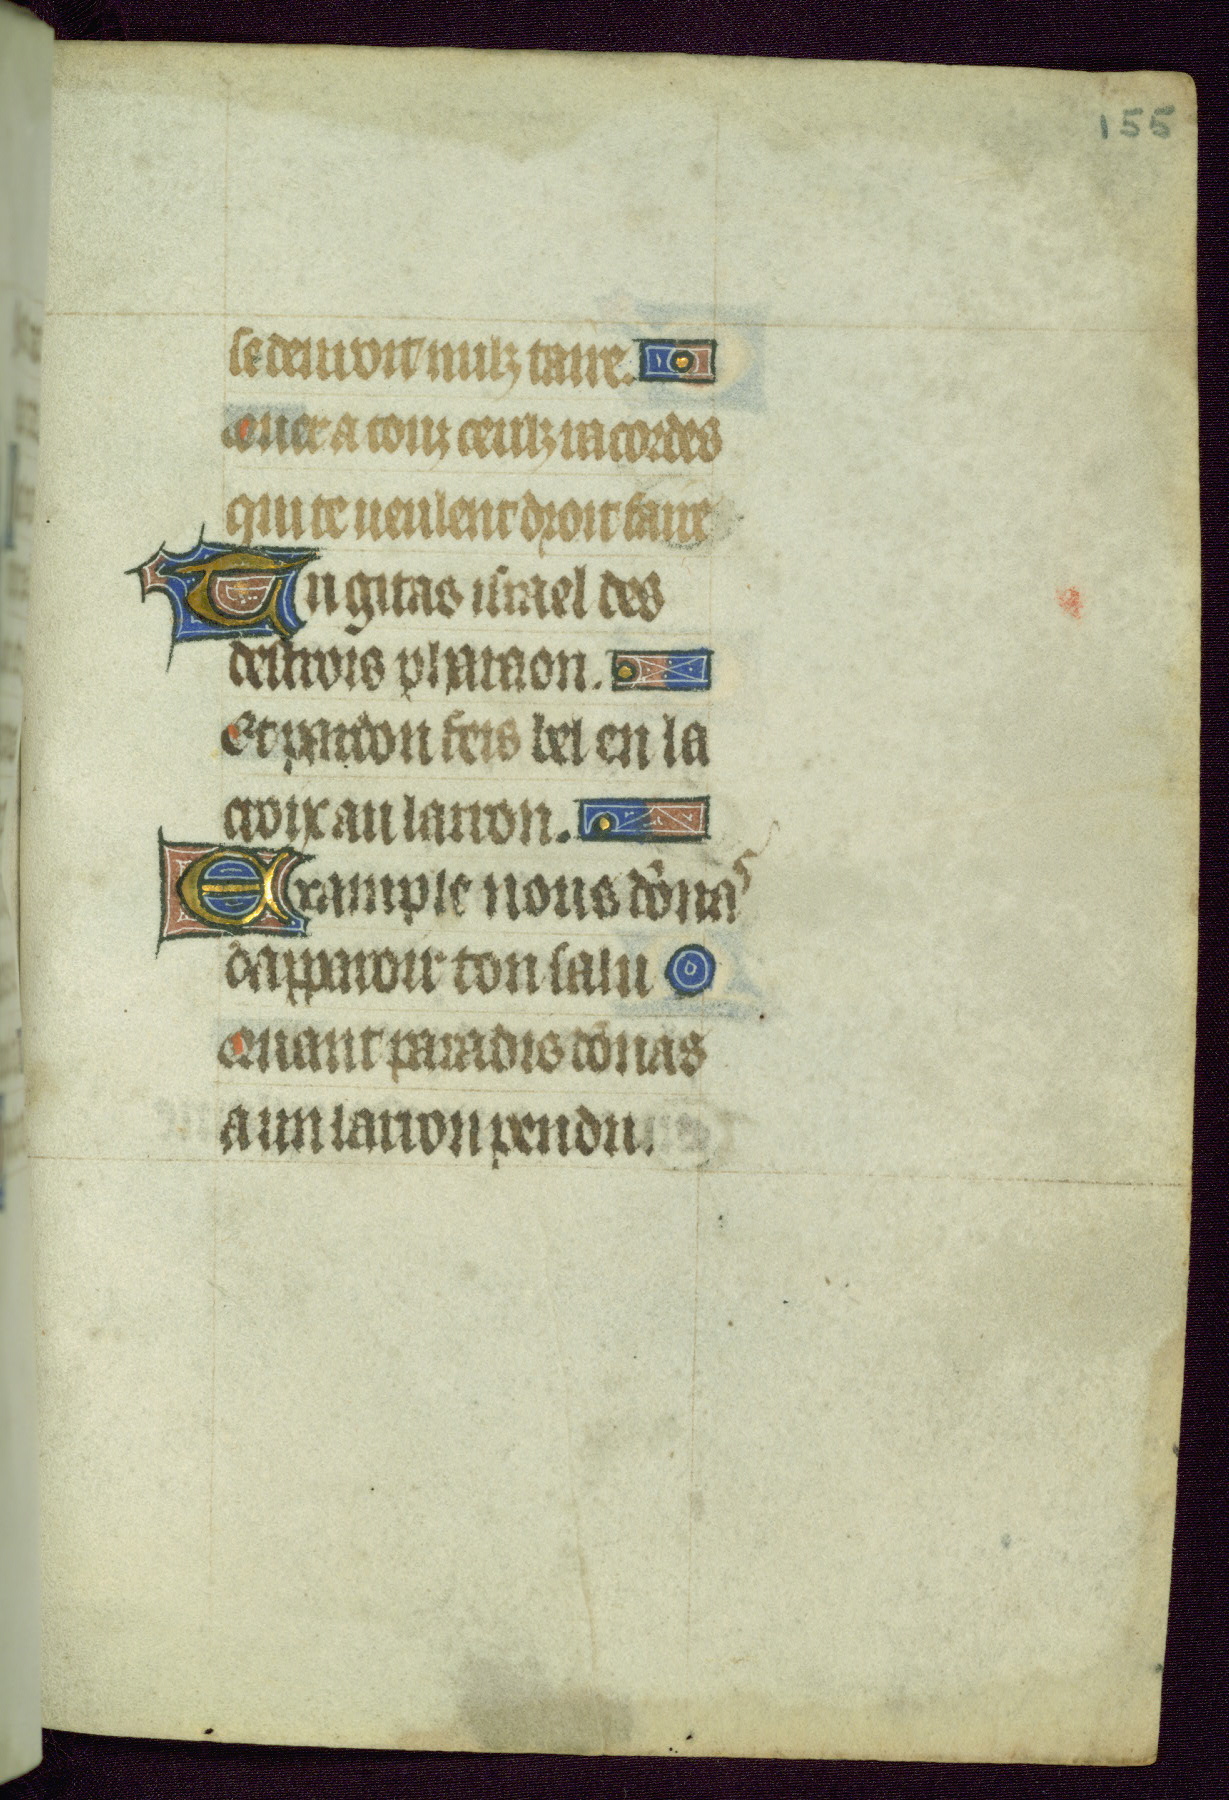 155
se deuroit nulz taire.
Quer a touz ceulz macordes
qui te ueulent droit faire
Tu gitas israel des
destrois pharaon.
Et pardon feis bel en la
croix au larron.
Example nous dōnas
dapparoir ton salu
Quant paradis dōnas
a un larron pendu.